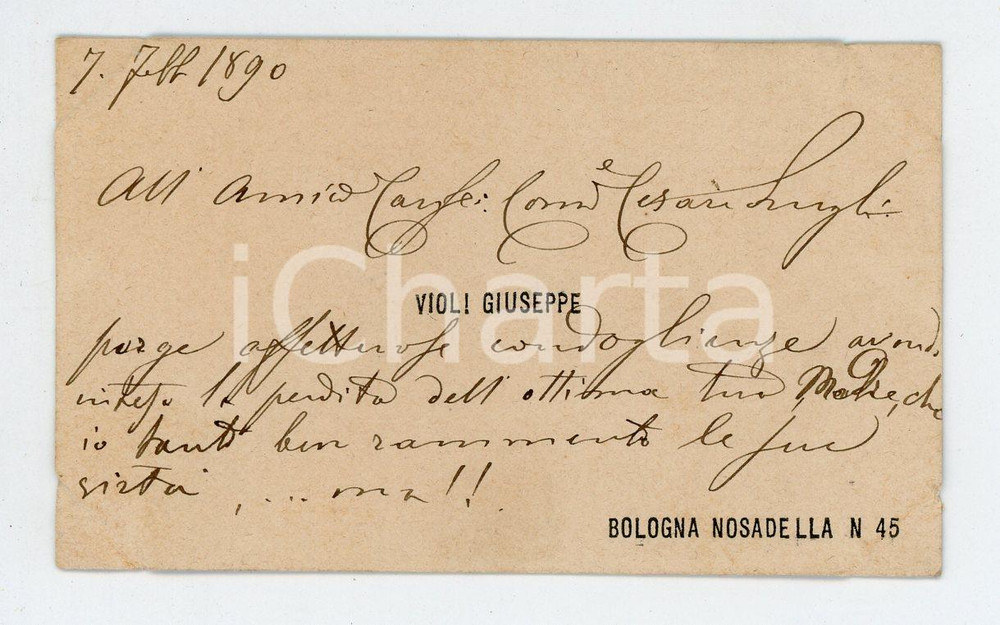 7. Febb 1890
All' Amico Consi: Come Cesare Lugli
VIOLI GIUSEPPE
porge affettuose condoglianze avendo
inteso la perdita dell' ottima tua Madre, che
io tanto ben rammento le sue
virtù, ... ma!!
BOLOGNA NOSADELLA N 45
iCharta